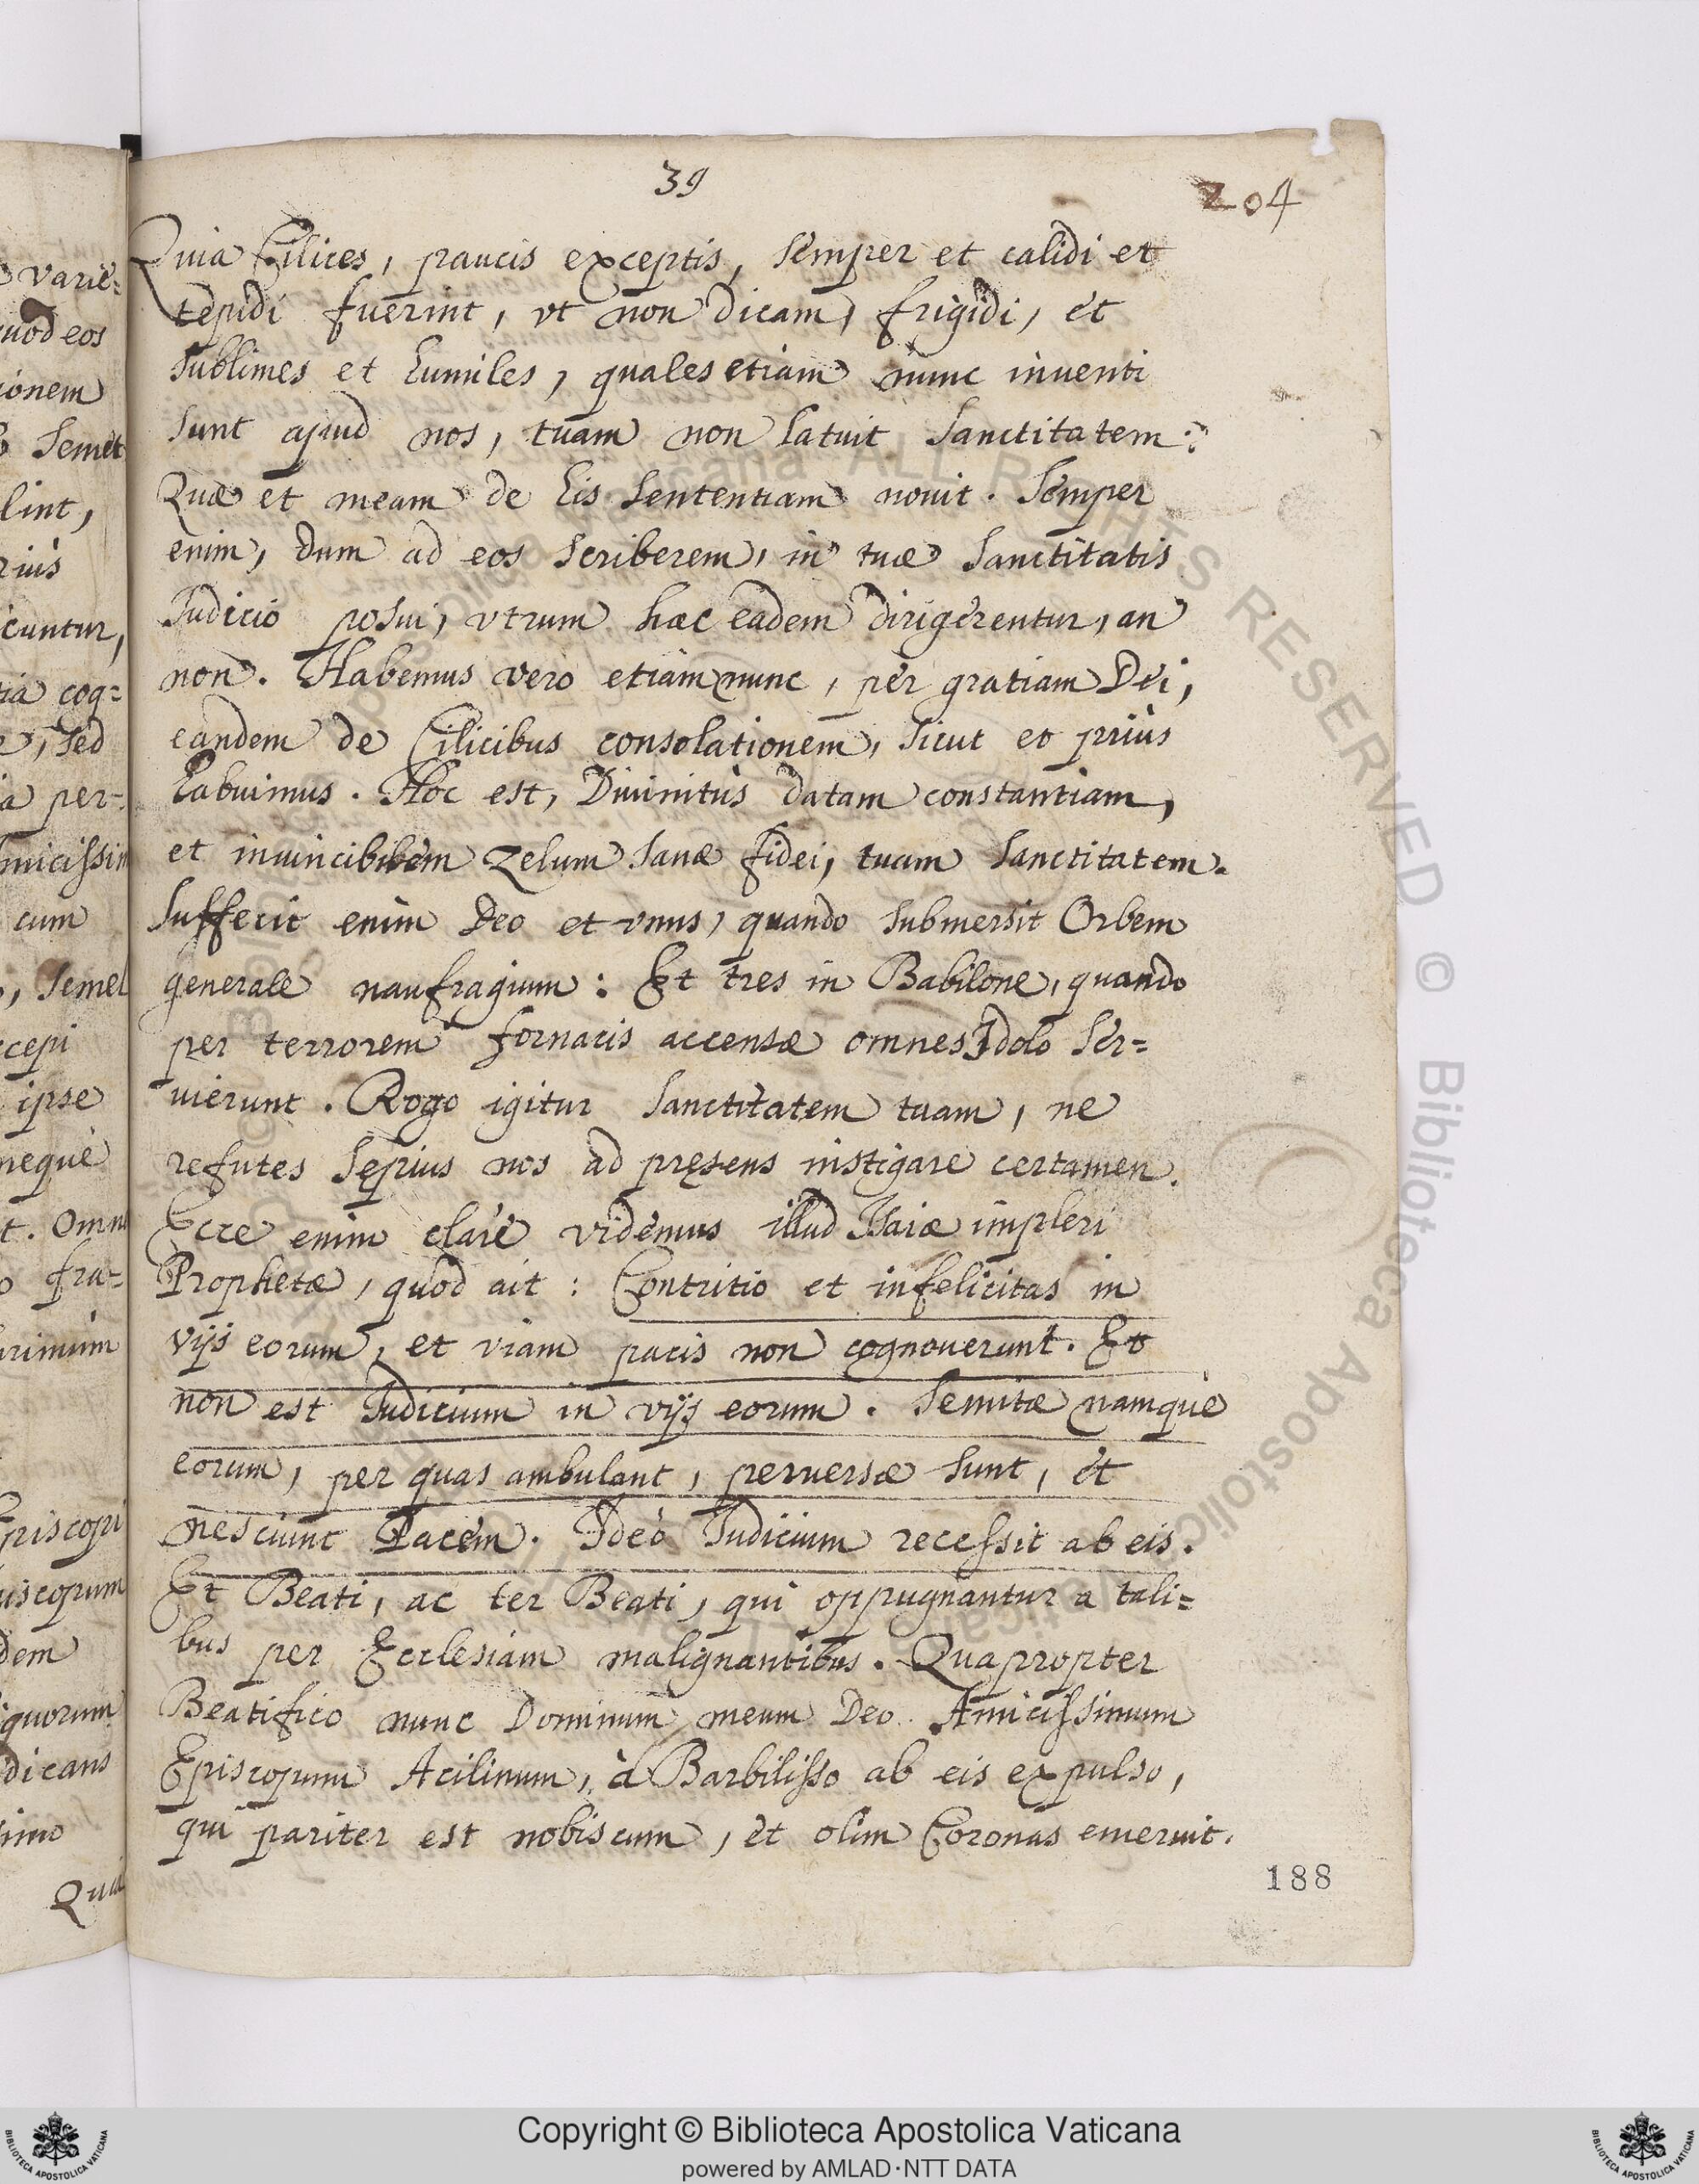 39
204
Quia Cilices, paucis exceptis, semper et calidi et
tepidi fuerint, vt non dicam, frigidi, et
sublimes et humiles, quales etiam nunc inuenti
sunt apud nos, tuam non latuit Sanctitatem:
Quæ et meam de his sententiam nouit. Semper
enim, dum ad eos scriberem, in tuæ Sanctitatis
Iudicio posui, vtrum hæc eadem dirigerentur, an
non. Habemus vero etiam nunc, per gratiam Dei,
eandem de Cilicibus consolationem, sicut et priùs
habuimus. Hoc est, Diuinitùs datam constantiam,
et inuincibilem zelum sanæ fidei, tuam Sanctitatem.
Suffecit enim Deo et vnus, quando submersit Orbem
generale naufragium: Et tres in Babilone, quando
per terrorem fornacis accensæ omnes Idolo ser=
uierunt. Rogo igitur Sanctitatem tuam, ne
refutes sępius nos ad pręsens instigare certamen.
Ecce enim clarè videmus illud Isaiæ impleri
Prophetæ, quod ait: Contritio et infelicitas in
vijs eorum, et viam pacis non cognouerunt. Et
non est Iudicium in vijs eorum. Semitæ namque
eorum, per quas ambulant, peruersæ sunt, et
nesciunt Pacem. Ideò Iudicium recessit ab eis.
Et Beati, ac ter Beati, qui oppugnantur a tali=
bus per Ecclesiam malignantibus. Quapropter
Beatifico nunc Dominum meum Deo Amicissimum
Episcopum Acilinum, à Barbilisso ab eis expulso,
qui pariter est nobiscum, et olim Coronas emeruit.
188
varie=
uod eos
ionem
semet
lint,
riùs
cuntur,
tia cog=
, sed
ia per=
micissim
cum
, semel
cepi
ipse
neque
t. Omn
fra=
rimùm
Episcopi
iscopum
dem
quorum
dicans
simo
Qui
Copyright © Biblioteca Apostolica Vaticana
powered by AMLAD·NTT DATA